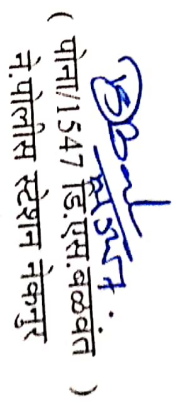 ( पोना/1547 डि.एस.वळवंत )
ने.पोलीस स्टेशन नेकनुर